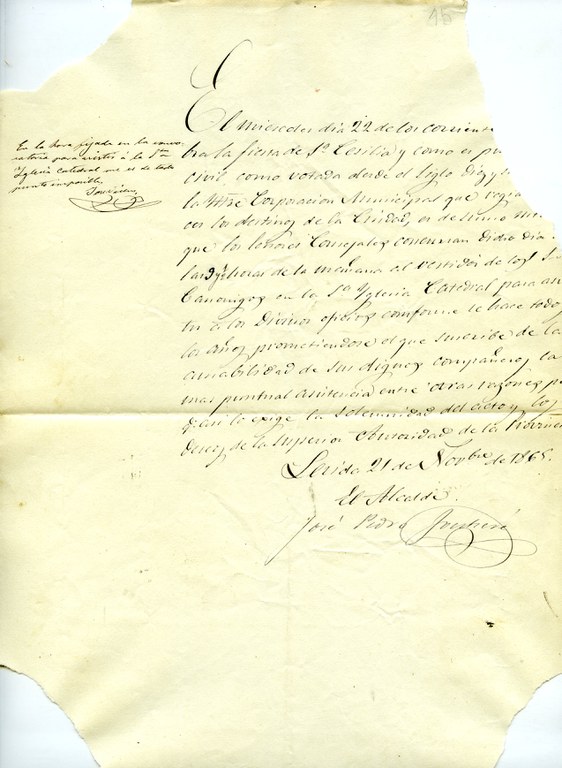 15
El miércoles dia 22 de los corriente
la fiesta de Sta Cecilia y como es
civil como votada desde el siglo
la Ittre Corporacion Municipal que
los destinos de la Ciudad, es de sumo
que los Señores Concejales concurran dicho dia
las horas de la mañana al vestidor de los
Canonigos en la Sta Yglesia Catedral para
á los Divinos oficios conforme se hace todos
los años, prometiendose el que suscribe de la
amabilidad de sus dignos compañeros la
mas puntual asistencia entre otras razones
asi lo exige la solemnidad del acto y los
deseos de la superior Autoridad de la
Lerida 21 de Novbre de 1865.
El Alcalde.
José Pedro
En la hora fijada en la convo
catoria para asistir á la Sta
Yglesia Catedral me es de todo
punto imposible